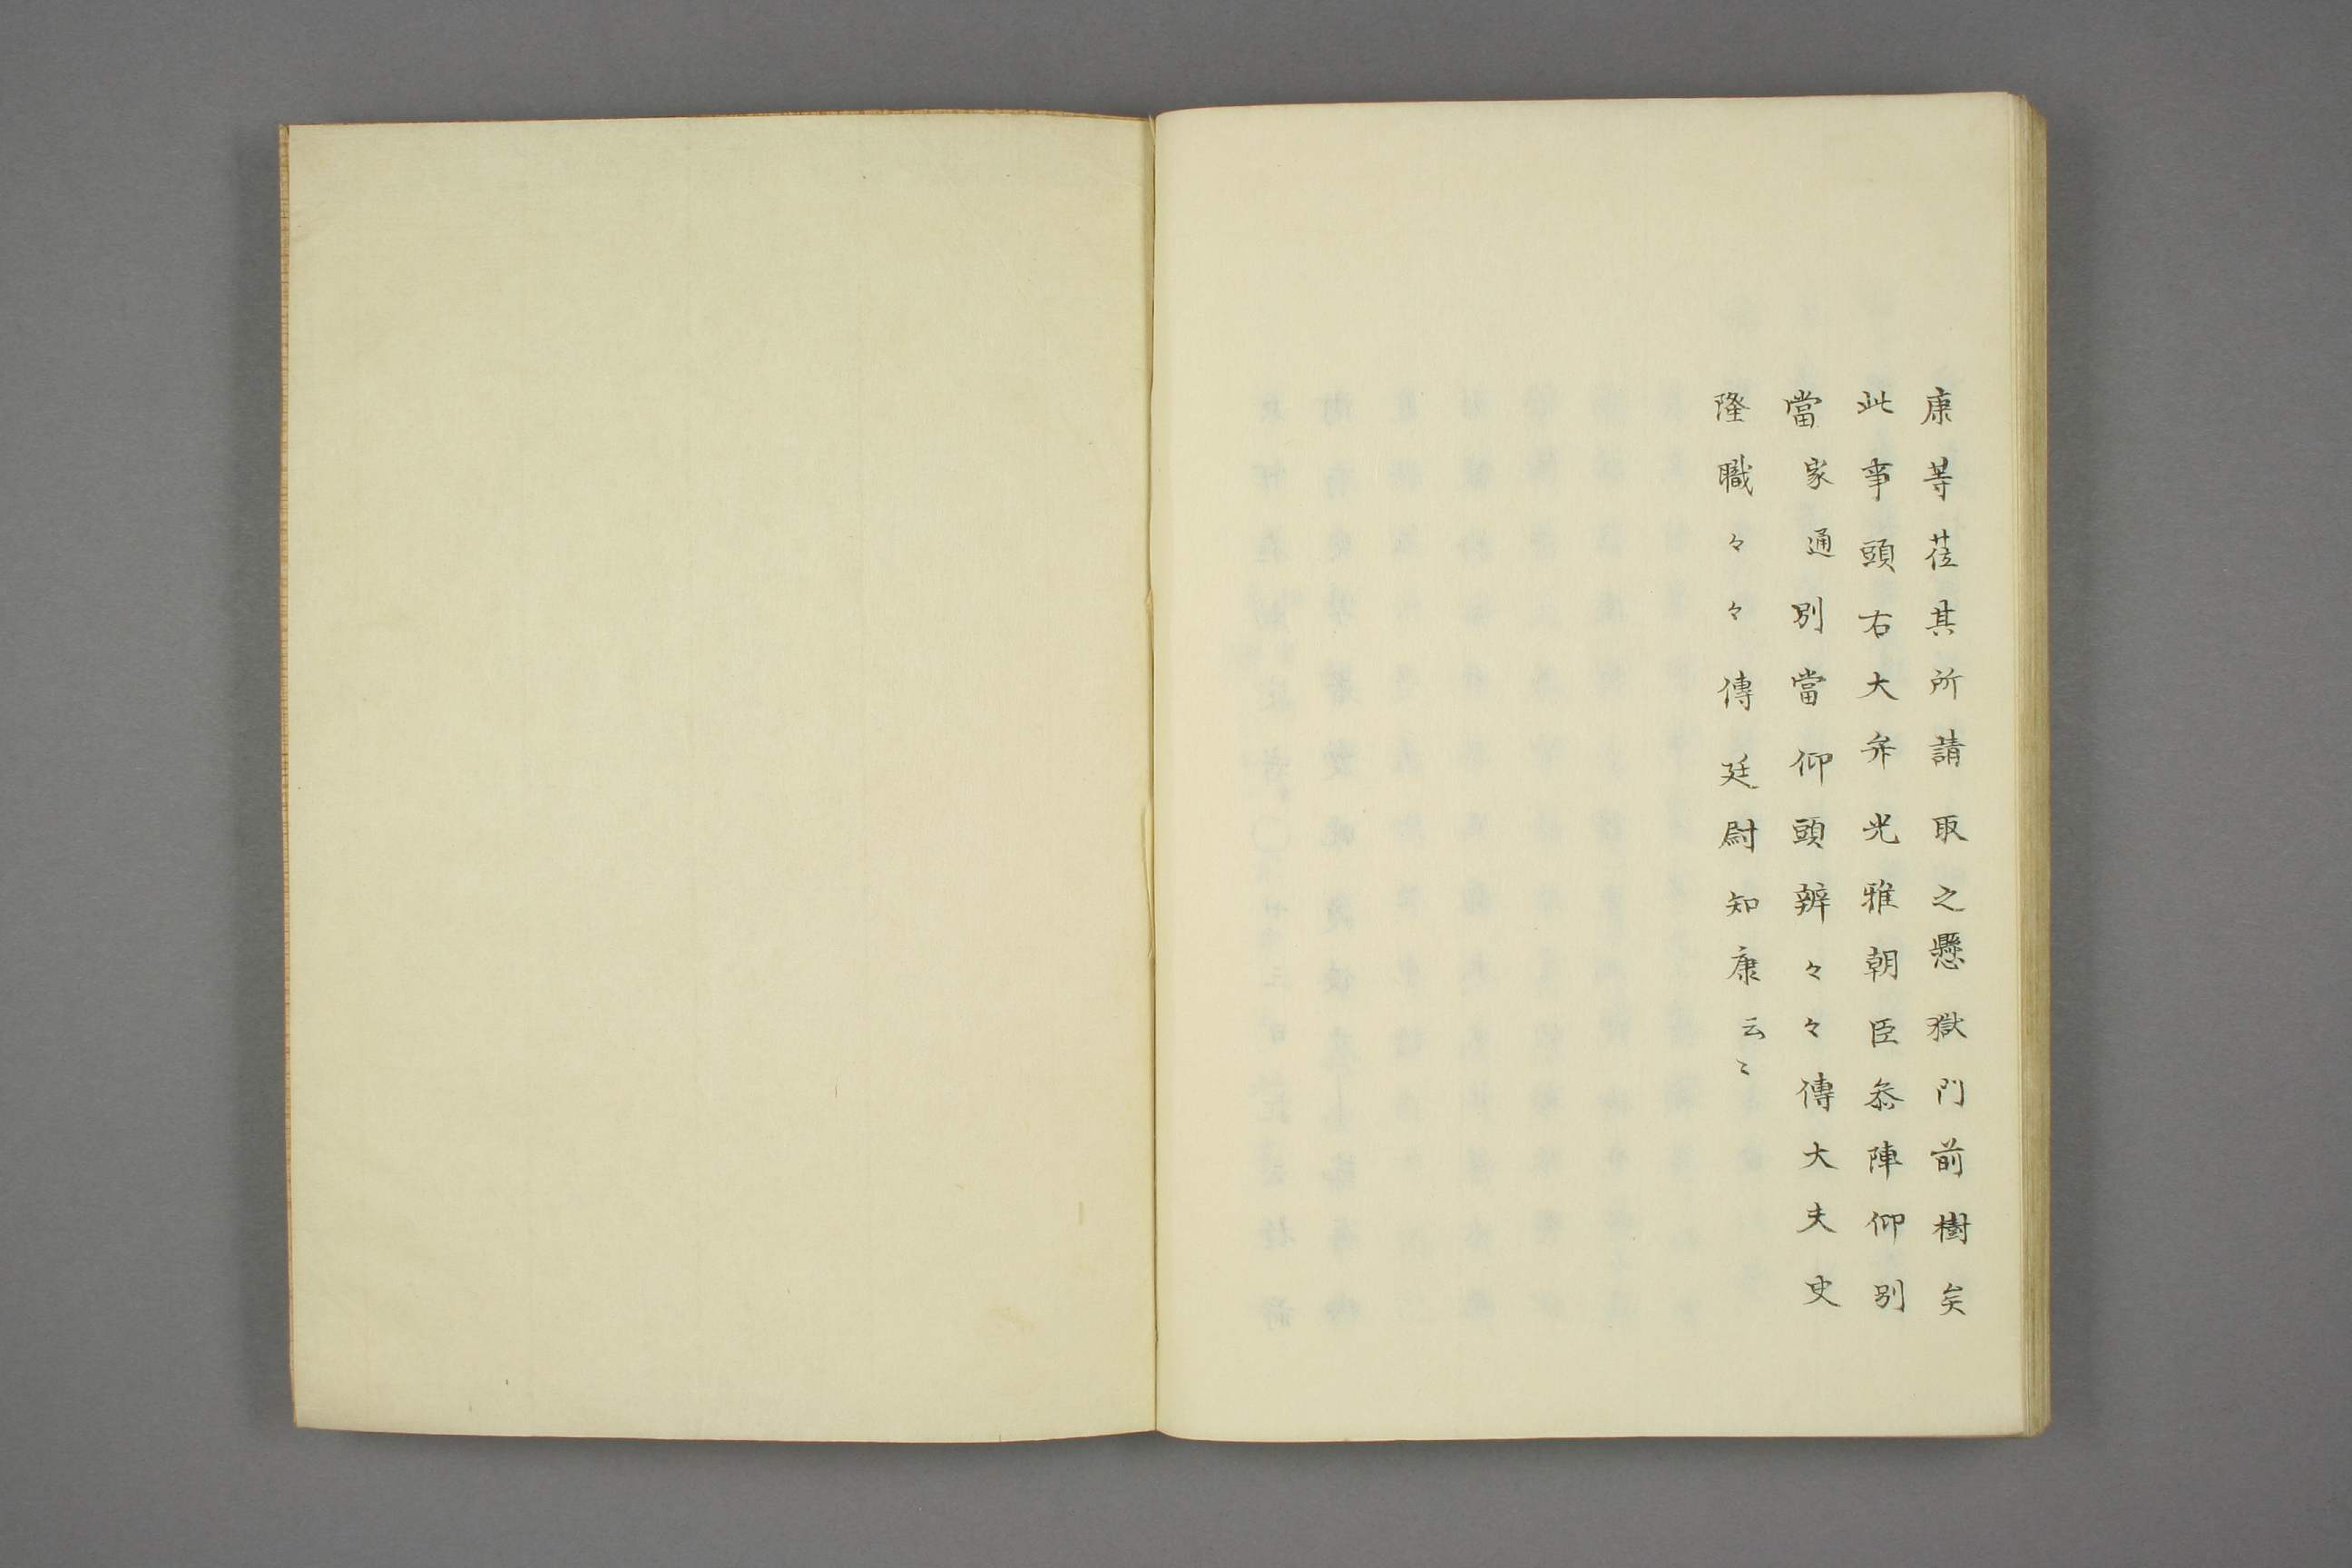 康等莅其所請取之懸獄門前樹矣
此事頭右大弁光雅朝臣叅陣仰別
當家通別當仰頭辨々々傳大夫史
隆職々々傳廷尉知康云〻